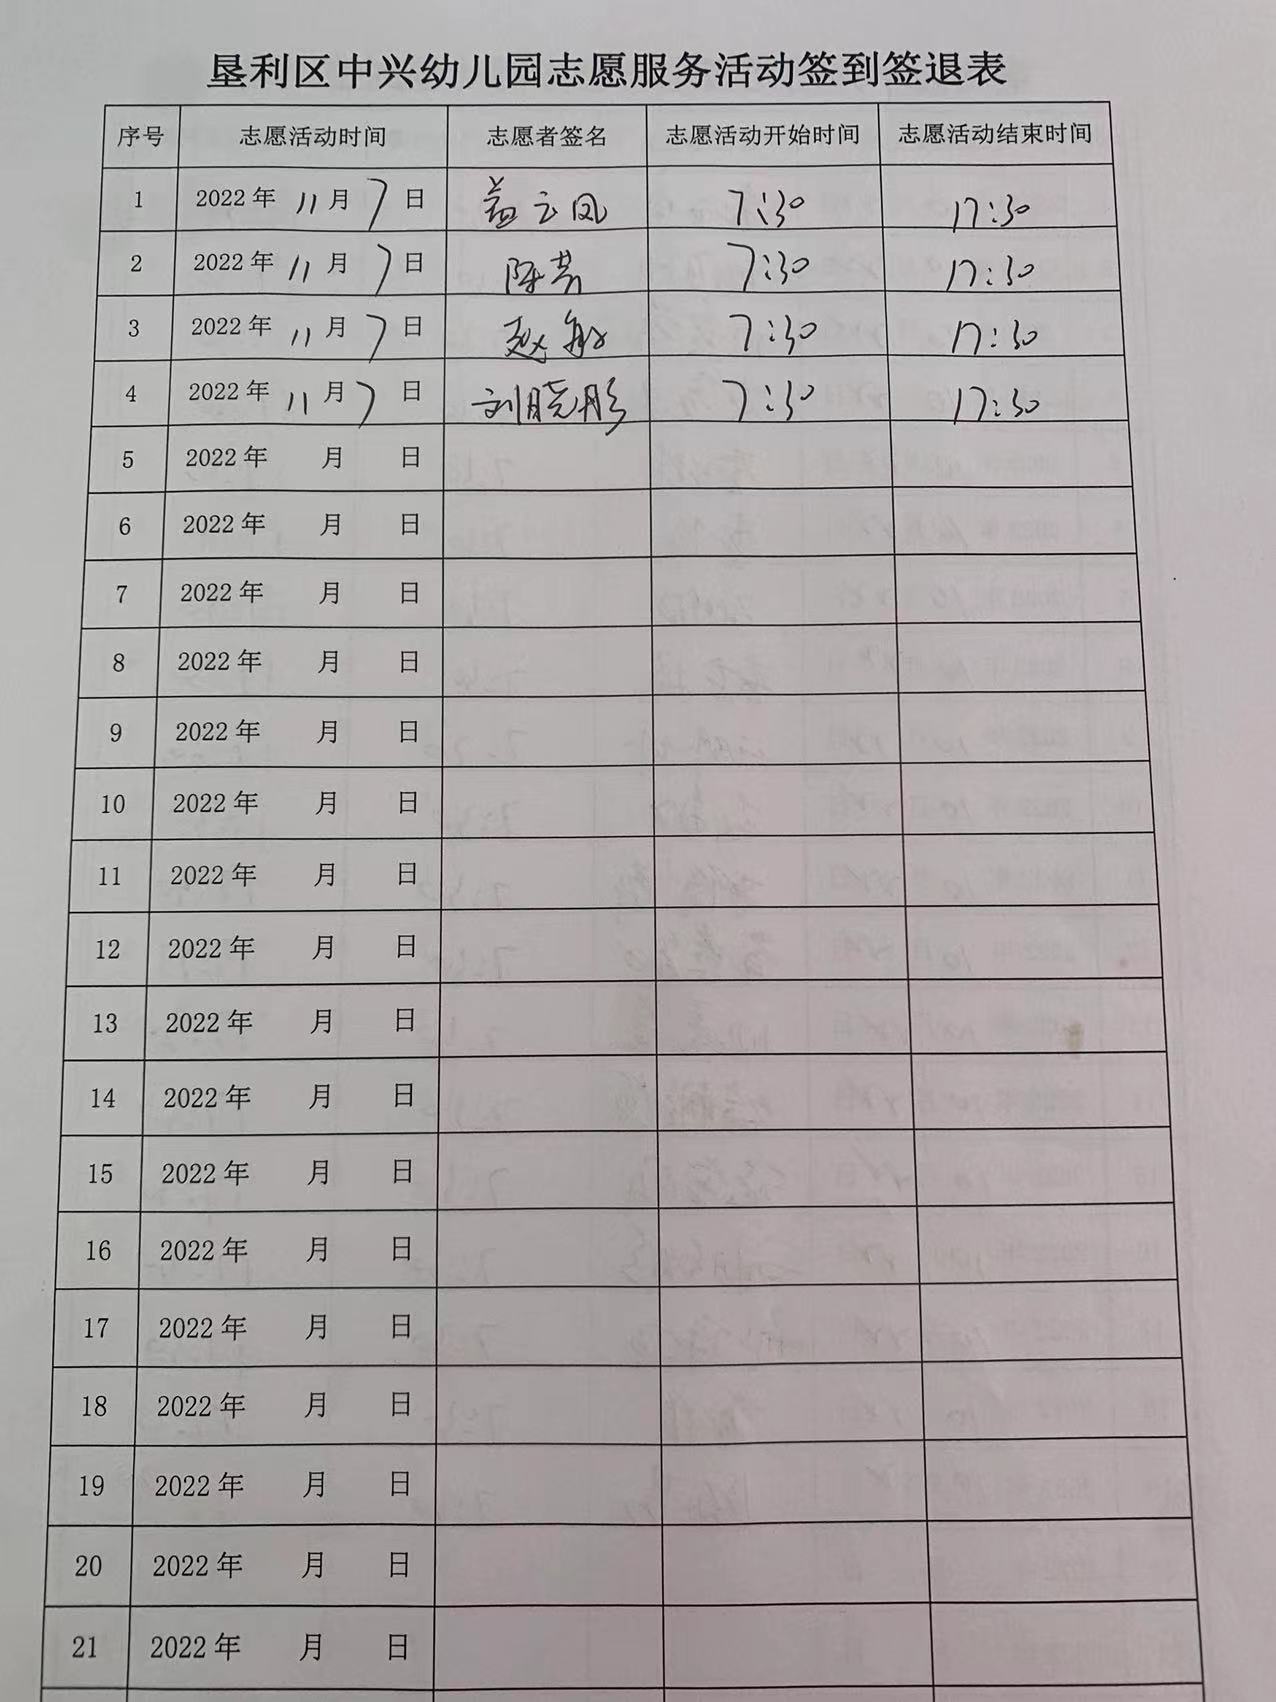 垦利区中兴幼儿园志愿服务活动签到签退表
序号 志愿活动时间 志愿者签名 志愿活动开始时间 志愿活动结束时间
1 2022年 11月 7日 盖云凤 7:30 17:30
2 2022年 11月 7日 陈芳 7:30 17:30
3 2022年 11月 7日 赵敏 7:30 17:30
4 2022年 11月 7日 刘晓彤 7:30 17:30
5 2022年 月 日
6 2022年 月 日
7 2022年 月 日
8 2022年 月 日
9 2022年 月 日
10 2022年 月 日
11 2022年 月 日
12 2022年 月 日
13 2022年 月 日
14 2022年 月 日
15 2022年 月 日
16 2022年 月 日
17 2022年 月 日
18 2022年 月 日
19 2022年 月 日
20 2022年 月 日
21 2022年 月 日